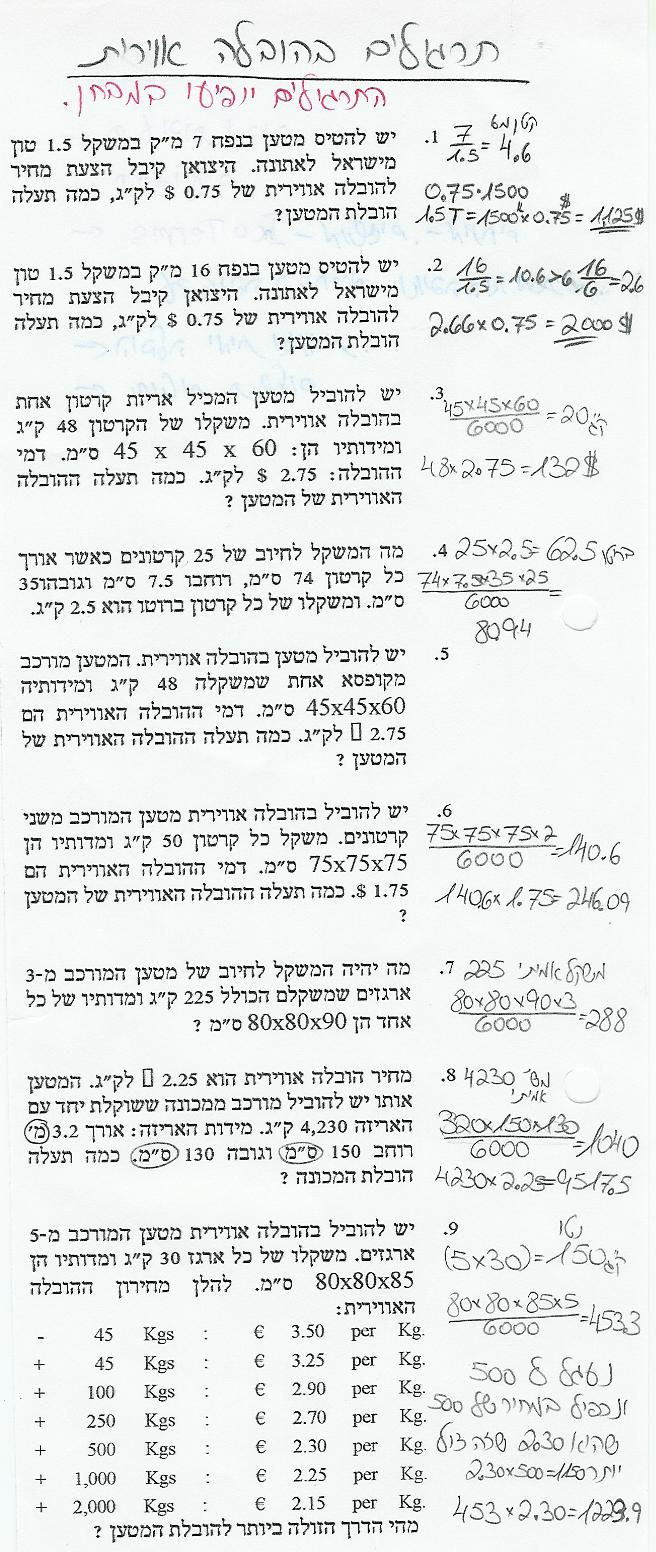 תרגולים בהובלה אווירית
התרגולים יופיעו במבחן.
1. יש להטיס מטען בנפח 7 מ"ק במשקל 1.5 טון
מישראל לאתונה. היצואן קיבל הצעת מחיר
להובלה אווירית של 0.75 $ לק"ג, כמה תעלה
הובלת המטען?
7/1.5 = 4.6
0.75·1500
1.5T = 1500 x 0.75 = 1,125$
2. יש להטיס מטען בנפח 16 מ"ק במשקל 1.5 טון
מישראל לאתונה. היצואן קיבל הצעת מחיר
להובלה אווירית של 0.75 $ לק"ג, כמה תעלה
הובלת המטען?
16/1.5 = 10.6 > 6 16/6 = 2.6
2.66 x 0.75 = 2000 $
3. יש להוביל מטען המכיל אריזת קרטון אחת
בהובלה אווירית. משקלו של הקרטון 48 ק"ג
ומידותיו הן: 60 x 45 x 45 ס"מ. דמי
ההובלה: 2.75 $ לק"ג. כמה תעלה ההובלה
האווירית של המטען ?
45x45x60/6000 = 20 ק"ג
48 x 2.75 = 132 $
4. מה המשקל לחיוב של 25 קרטונים כאשר אורך
כל קרטון 74 ס"מ, רוחבו 7.5 ס"מ וגובהו35
ס"מ. ומשקלו של כל קרטון ברוטו הוא 2.5 ק"ג.
25x2.5= 62.5 ברוטו
74x7.5x35x25/6000 =
80.94
5. יש להוביל מטען בהובלה אווירית. המטען מורכב
מקופסא אחת שמשקלה 48 ק"ג ומידותיה
45x45x60 ס"מ. דמי ההובלה האווירית הם
2.75 לק"ג. כמה תעלה ההובלה האווירית של
המטען ?
6. יש להוביל בהובלה אווירית מטען המורכב משני
קרטונים. משקל כל קרטון 50 ק"ג ומדותיו הן
75x75x75 ס"מ. דמי ההובלה האווירית הם
1.75 $. כמה תעלה ההובלה האווירית של המטען
?
75x75x75x2/6000 = 140.6
140.6 x 1.75 = 246.09
7. מה יהיה המשקל לחיוב של מטען המורכב מ-3
ארגזים שמשקלם הכולל 225 ק"ג ומדותיו של כל
אחד הן 80x80x90 ס"מ ?
משקל אמיתי 225
80x80x90x3/6000 = 288
8. מחיר הובלה אווירית הוא 2.25 לק"ג. המטען
אותו יש להוביל מורכב ממכונה ששוקלת יחד עם
האריזה 4,230 ק"ג. מידות האריזה: אורך 3.2 מ'
רוחב 150 ס"מ וגובה 130 ס"מ. כמה תעלה
הובלת המכונה ?
4230 מש' אמיתי
320x150x130/6000 = 1040
4230x2.25=9517.5
9. יש להוביל בהובלה אווירית מטען המורכב מ-5
ארגזים. משקלו של כל ארגז 30 ק"ג ומדותיו הן
80x80x85 ס"מ. להלן מחירון ההובלה
האווירית:
- 45 Kgs : € 3.50 per Kg.
+ 45 Kgs : € 3.25 per Kg.
+ 100 Kgs : € 2.90 per Kg.
+ 250 Kgs : € 2.70 per Kg.
+ 500 Kgs : € 2.30 per Kg.
+ 1,000 Kgs : € 2.25 per Kg.
+ 2,000 Kgs : € 2.15 per Kg.
מהי הדרך הזולה ביותר להובלת המטען ?
נטו
(5x30)=150 ק"ג
80x80x85x5/6000 = 453.3
נעגל ל 500
ונכפיל במחיר של 500
שהוא 2.30 שזה זול
יותר 2.30x500=1150
453 x 2.30 = 1223.9